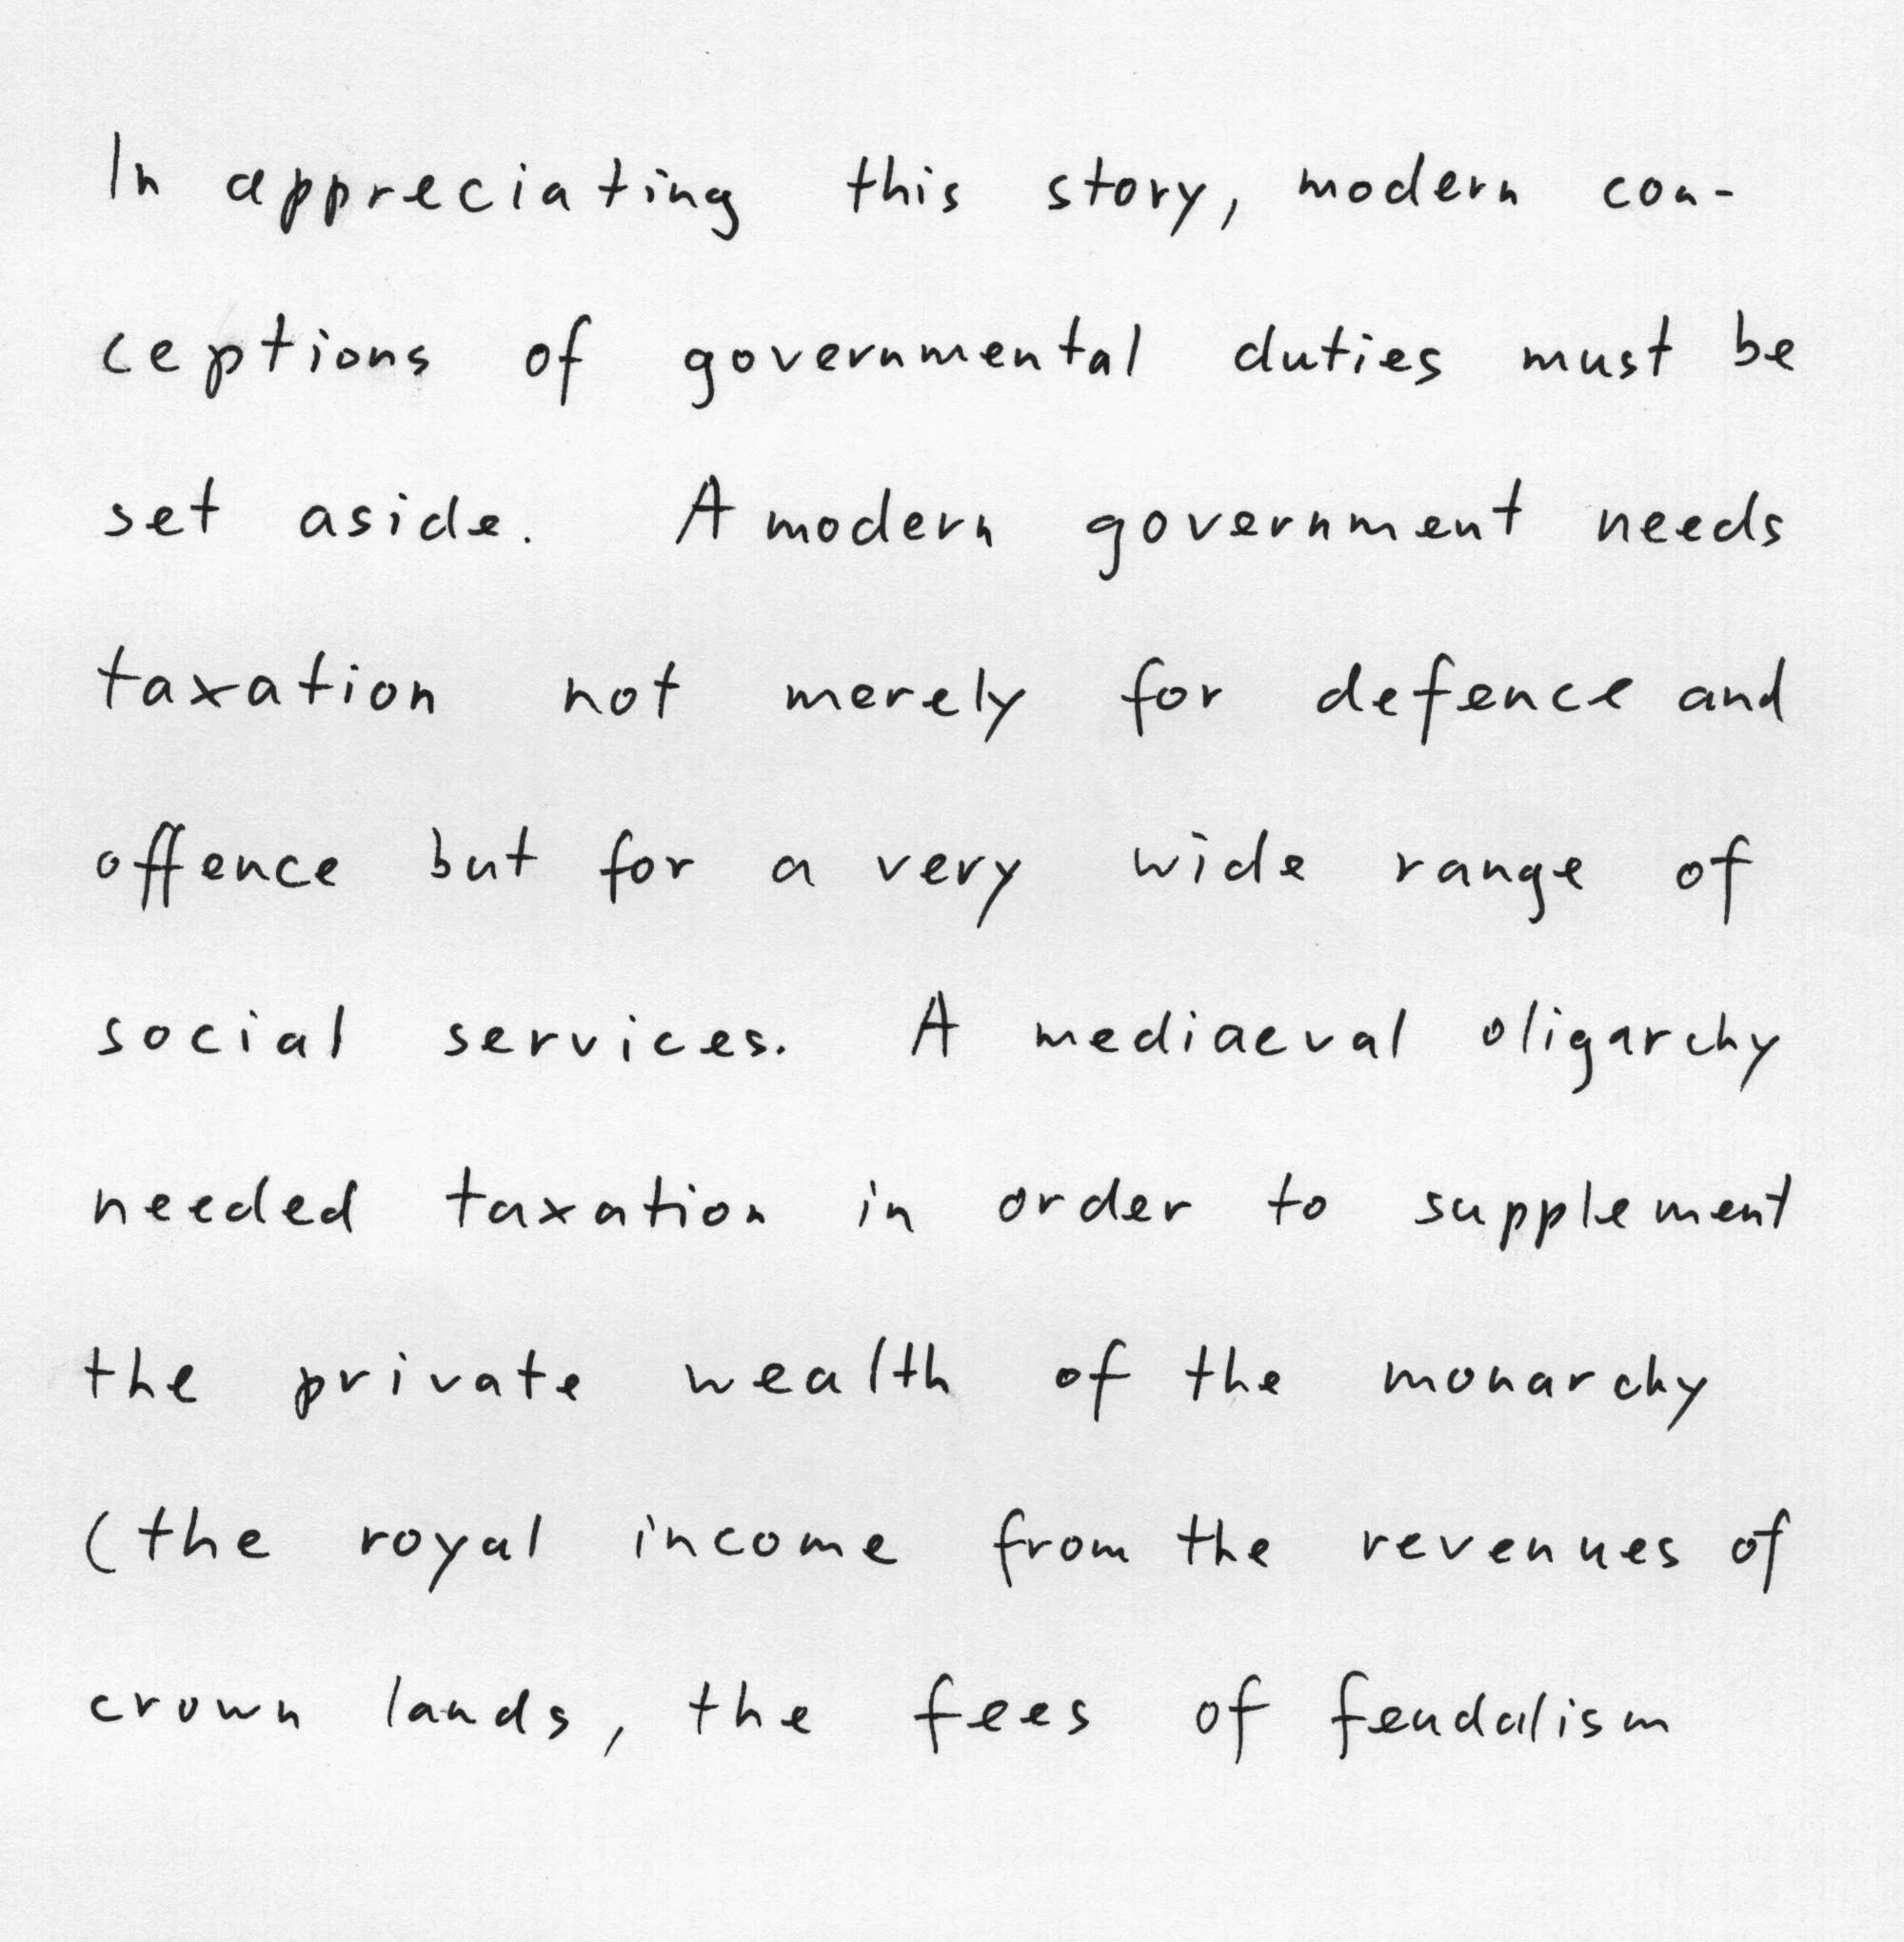 In appreciating this story, modern con-
ceptions of governmental duties must be
set aside. A modern government needs
taxation not merely for defence and
offence but for a very wide range of
social services. A mediaeval oligarchy
needed taxation in order to supplement
the private wealth of the monarchy
(the royal income from the revenues of
crown lands, the fees of feudalism